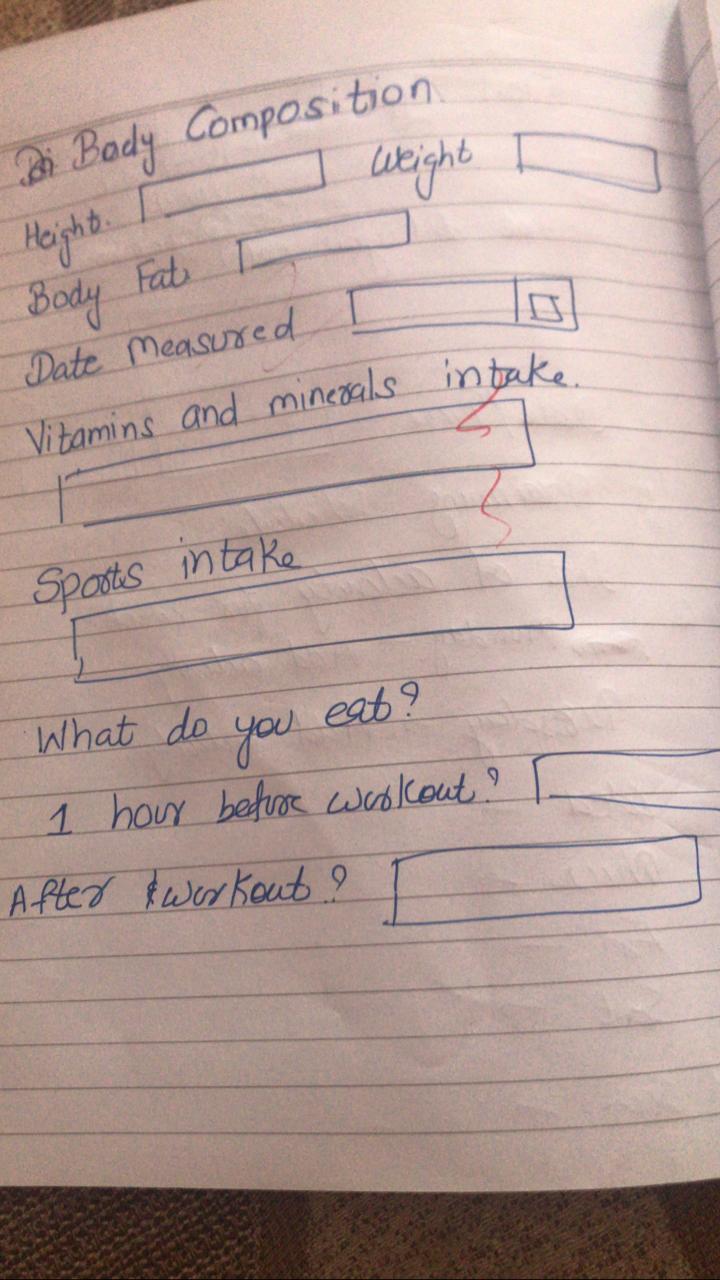 Body Composition
Height. Weight
Body Fat
Date Measured
Vitamins and minerals intake.
Sports intake
What do you eat?
1 hour before workout?
After workout?